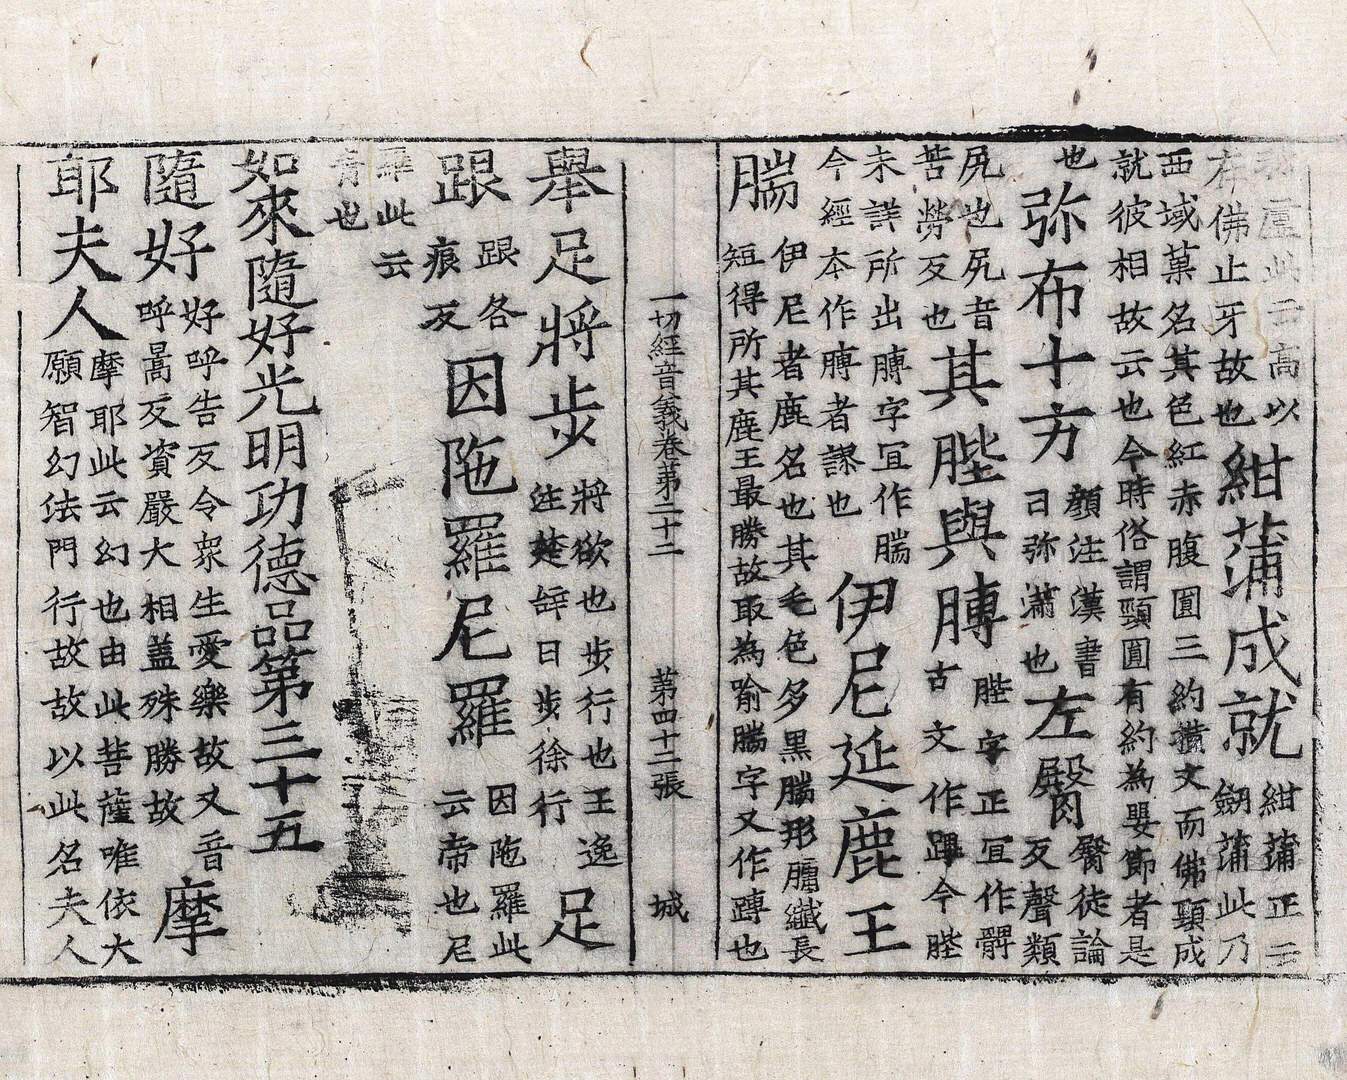 盧此云高以
在佛上牙故也紺蒲成就紺蒲正云
劒蒲此乃
西域菓名其色紅赤腹圓三約攢文而佛頸成
就彼相故云也今時俗謂頸圓有約為嬰節者是
也弥布十方顏注漢書
曰弥滿也左臋臀徒論
反聲類
尻也尻音
苦勞反也其䏶與膞䏶字正宜作髀
古文作踔今䏶
未詳所出膞字宜作腨
今經本作膞者謬也伊尼延鹿王
腨伊尼者鹿名也其毛色多黑腨形𦟛纖長
短得所其鹿王最勝故取為喻腨字又作蹲也
一切經音義卷第二十二 第四十二張 城
舉足將步將欲也步行也王逸
注楚辝曰步徐行足
跟跟各
痕反因陁羅尼羅因陁羅此
云帝也尼
羅此云
青也
如來隨好光明功德品第三十五
隨好好呼告反令衆生愛樂故又音
呼暠反資嚴大相盖殊勝故摩
耶夫人摩耶此云幻也由此菩薩唯依大
願智幻法門行故故以此名夫人